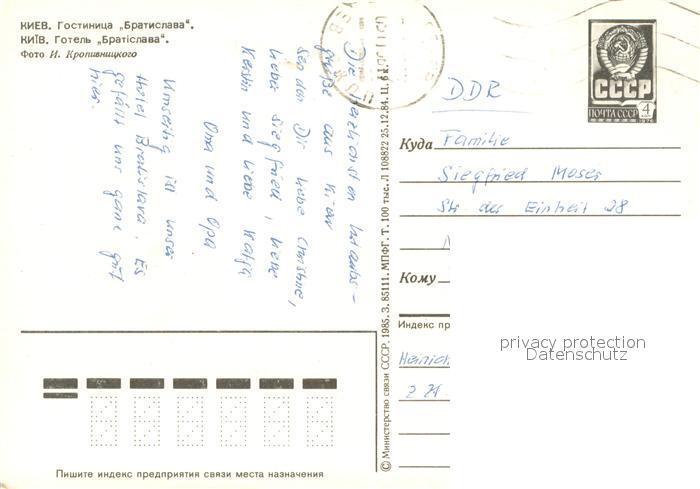 КИЕВ. Гостиница „Братислава“.
КИЇВ. Готель „Братіслава“.
Фото И. Кропивницкого
Die herzlichsten Urlaubs-
grüße aus Kiew
senden Dir liebe Christine,
lieber Siegfried, liebe
Kerstin und liebe Katja
Oma und Opa
Umseitig ist unser
Hotel Bratislava. Es
gefällt uns ganz gut
hier.
© Министерство связи СССР, 1985. З. 85111. МПФГ. Т. 100 тыс. Л 108822 25.12.84. Ц. 6
СССР
4
ПОЧТА СССР
DDR
Куда Familie
Siegfried Moser
Str der Einheit 28
Кому
Индекс пр
privacy protection
Datenschutz
Пишите индекс предприятия связи места назначения